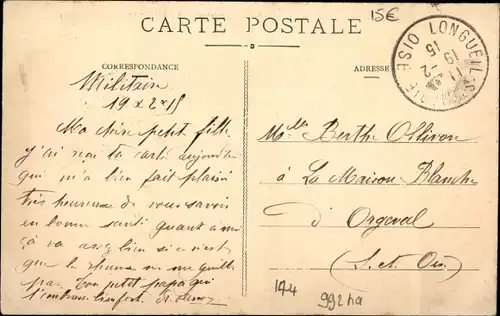 15€
CARTE POSTALE
CORRESPONDANCE
ADRESSE
LONGUEIL OISE
11 - 2
19 15
Militaire
19 x 2 x 15
Ma chère petit fille
j'ai reçu ta carte aujourd'hui
qui m'a bien fait plaisir
très heureuse de vous savoir
en bonne santé quant à moi
ça va assez bien si ce n'est
que le rhume ne me quitte
pas. Ton petit papa qui
t'embrasse bien fort.
Melle Berthe Ollivon
à La Maison Blanche
d'Orgeval
(S. et Ois.)
144
992ha